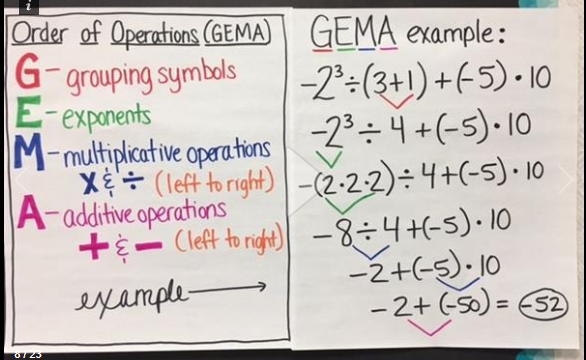 i
Order of Operations (GEMA)
G- grouping symbols
E- exponents
M- multiplicative operations
X & ÷ (left to right)
A- additive operations
+ & - (left to right)
example
GEMA example:
-2³÷(3+1)+(-5)·10
-2³÷4+(-5)·10
-(2·2·2)÷4+(-5)·10
-8÷4+(-5)·10
-2+(-5)·10
-2+(-50)=-52
8 / 23